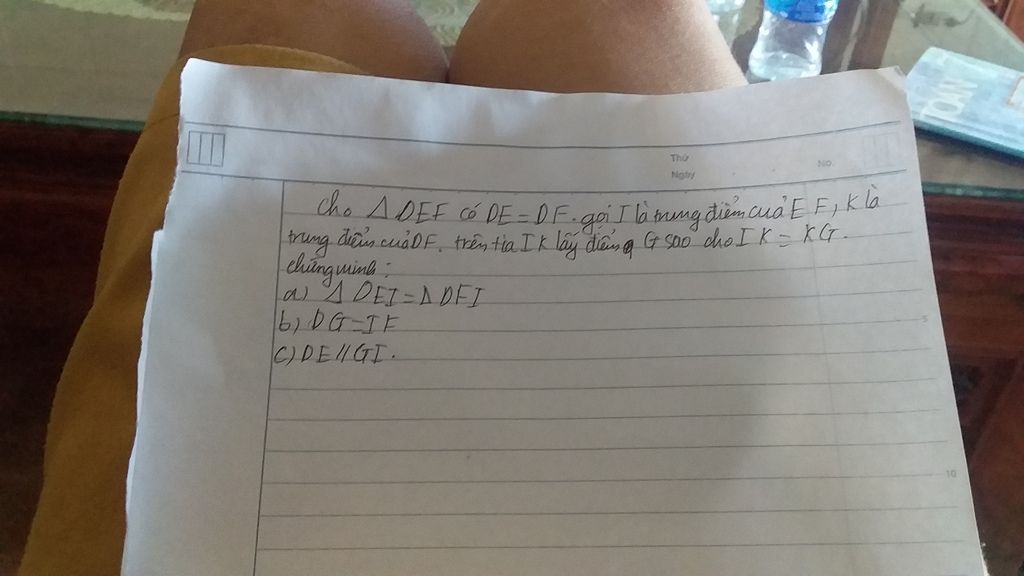 Thứ
Ngày
No.
TOÁN
Cho Δ DEF có DE = DF. gọi I là trung điểm cuả E F, K là
trung điểm cuả DF. trên tia I K lấy điểm G sao cho I K = KG.
chứng minh:
a) Δ DEI = Δ DFI
b) DG = IF
c) DE // GI.
5
10